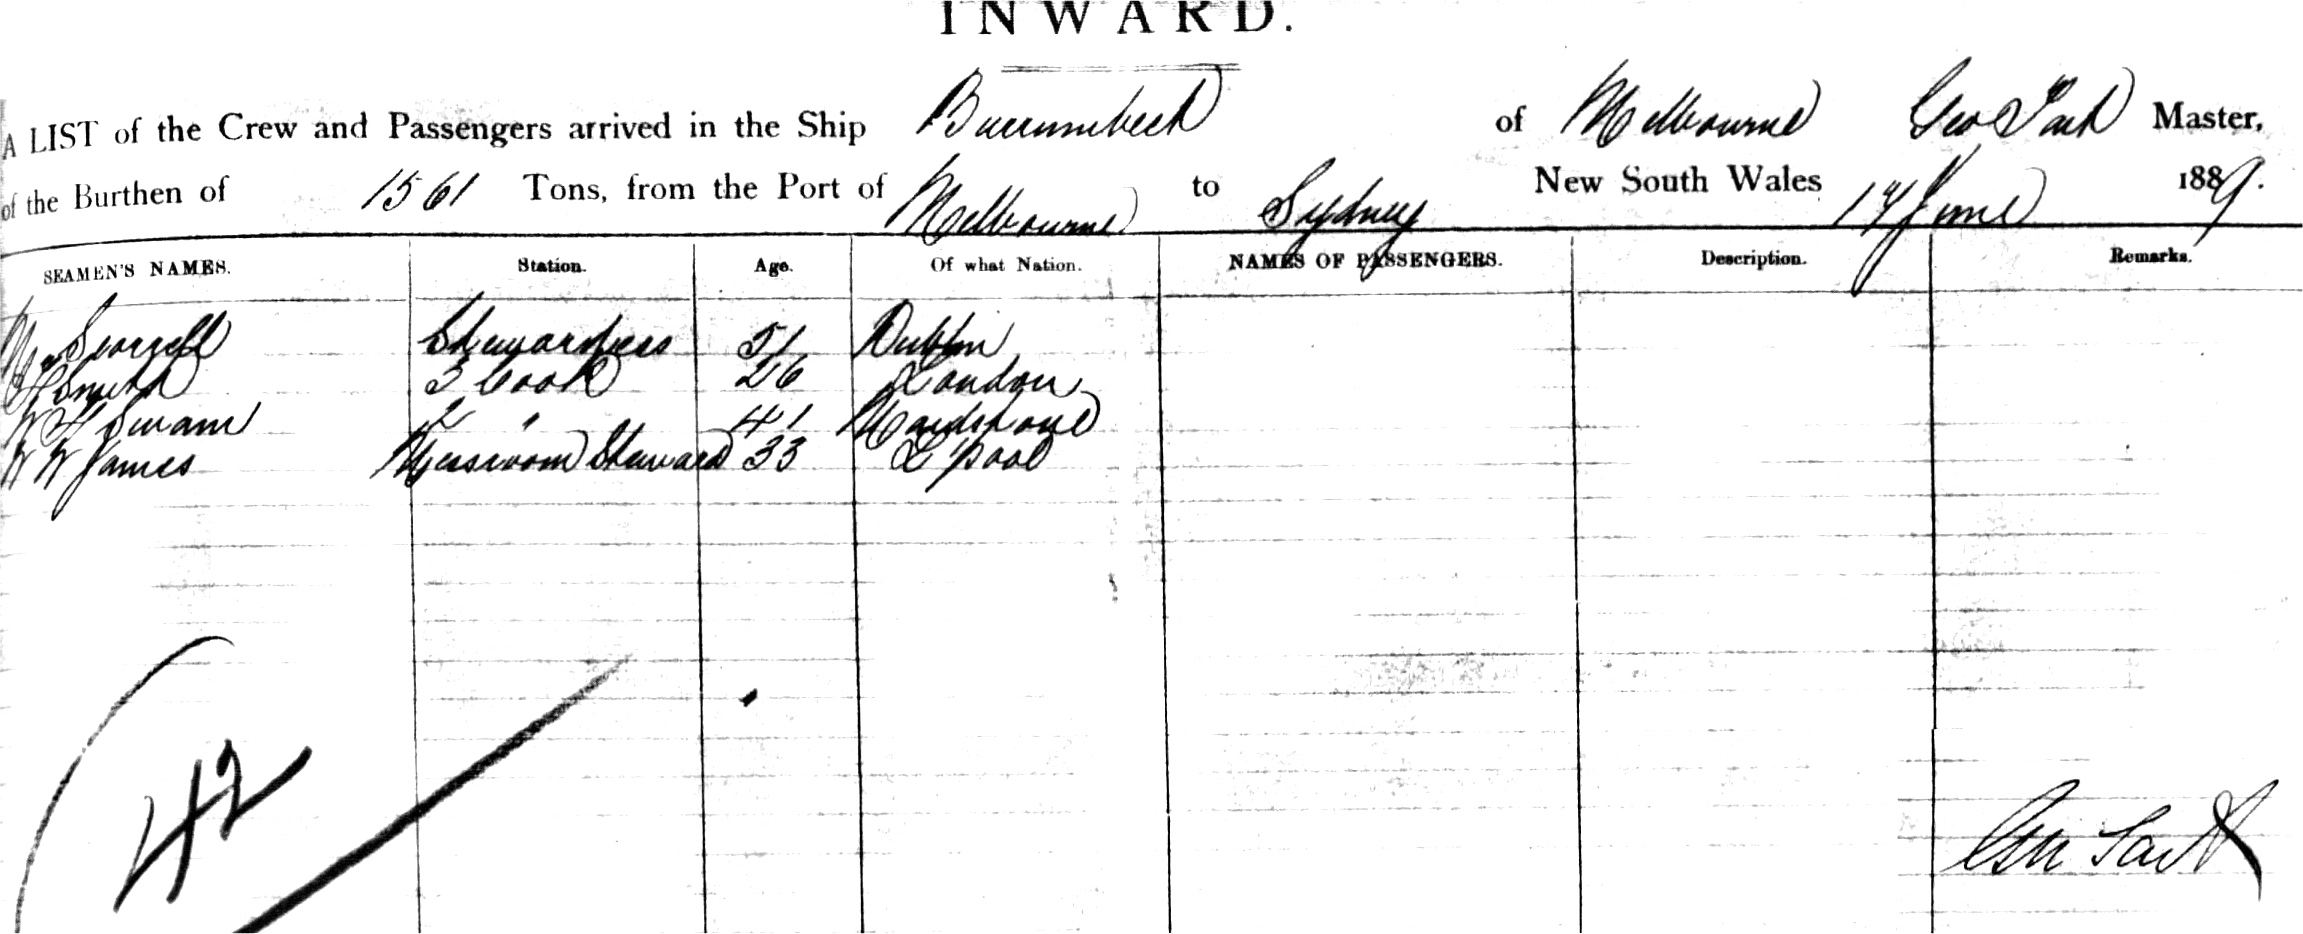 INWARD.
A LIST of the Crew and Passengers arrived in the Ship Burrumbeet of Melbourne Geo Master,
of the Burthen of 1561 Tons, from the Port of Melbourne to Sydney New South Wales 14 June 1889.
SEAMEN'S NAMES. Station. Age. Of what Nation. NAMES OF PASSENGERS. Description. Remarks.
Stewardess 51 Dublin
H Smith 3 Cook 26 London
W H Swann 2 " 41 Maidstone
W W James Messroom Steward 33 L'pool
42